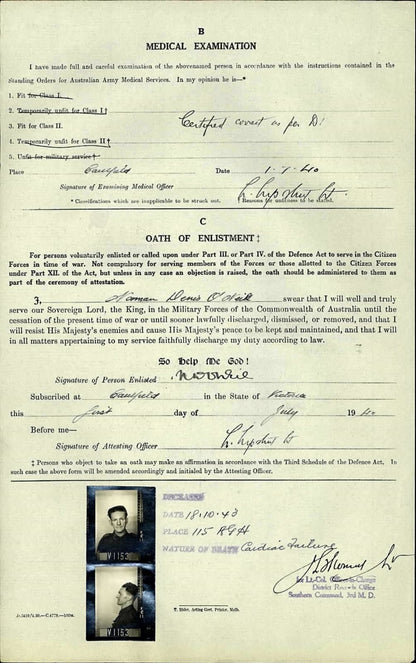 B
MEDICAL EXAMINATION
I have made full and careful examination of the abovenamed person in accordance with the instructions contained in the
Standing Orders for Australian Army Medical Services. In my opinion he is—*
1. Fit for Class I.
2. Temporarily unfit for Class I †
3. Fit for Class II.
4. Temporarily unfit for Class II †
5. Unfit for military service †
Certified correct as per D1
Place Caulfield Date 1.7.40
Signature of Examining Medical Officer
* Classifications which are inapplicable to be struck out. † Reasons for unfitness to be stated.
C
OATH OF ENLISTMENT ‡
For persons voluntarily enlisted or called upon under Part III. or Part IV. of the Defence Act to serve in the Citizen Forces
in time of war. Not compulsory for serving members of the Forces or those allotted to the Citizen Forces
under Part XII. of the Act, but unless in any case an objection is raised, the oath should be administered to them as
part of the ceremony of attestation.
I, Norman Denis O'Neil swear that I will well and truly
serve our Sovereign Lord, the King, in the Military Forces of the Commonwealth of Australia until the
cessation of the present time of war or until sooner lawfully discharged, dismissed, or removed, and that I
will resist His Majesty's enemies and cause His Majesty's peace to be kept and maintained, and that I will
in all matters appertaining to my service faithfully discharge my duty according to law.
So Help Me God!
Signature of Person Enlisted
Subscribed at Caulfield in the State of Victoria
this first day of July 1940
Before me—
Signature of Attesting Officer
‡ Persons who object to take an oath may make an affirmation in accordance with the Third Schedule of the Defence Act. In
such case the above form will be amended accordingly and initialed by the Attesting Officer.
DECEASED
DATE 18.10.43
PLACE 115 AGH
NATURE OF DEATH Cardiac Failure
for Lt.-Col. Officer-in-Charge
District Records Office
Southern Command, 3rd M. D.
V1153
V1153